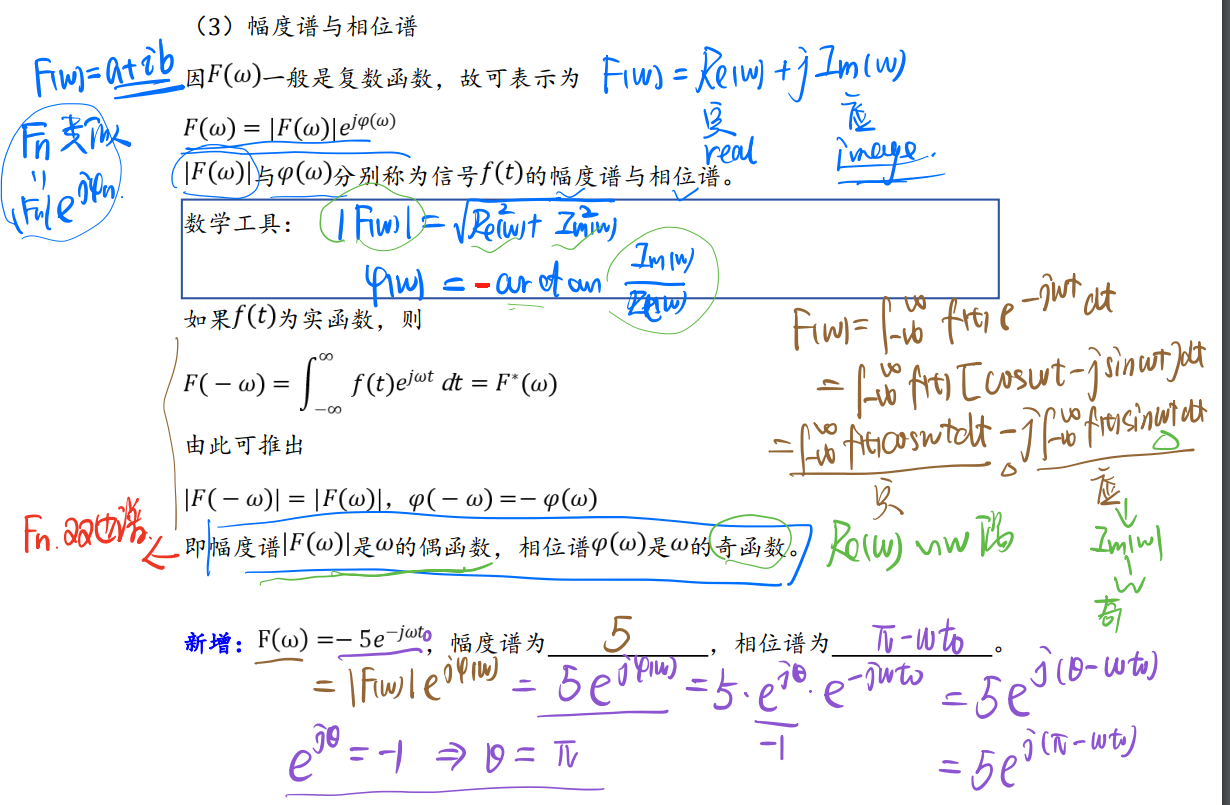 （3）幅度谱与相位谱
F(w)=a+ib
因F(ω)一般是复数函数，故可表示为
F(w) = Re(w) + j Im(w)
实
虚
real
image.
F(ω) = |F(ω)|e^{jφ(ω)}
Fn 类似
=
|Fn|e^{jφn}.
|F(ω)|与φ(ω)分别称为信号f(t)的幅度谱与相位谱。
数学工具： |F(w)| = √(Re²(w) + Im²(w))
φ(w) = - arctan Im(w)/Re(w)
如果f(t)为实函数，则
F( − ω) = ∫_{−∞}^{∞} f(t)e^{jωt} dt = F*(ω)
由此可推出
|F( − ω)| = |F(ω)|，φ( − ω) =− φ(ω)
即幅度谱|F(ω)|是ω的偶函数，相位谱φ(ω)是ω的奇函数。
Fn.双边谱
F(w) = ∫_{-∞}^{∞} f(t) e^{-jwt} dt
= ∫_{-∞}^{∞} f(t) [coswt - jsinwt] dt
= ∫_{-∞}^{∞} f(t)coswt dt - j∫_{-∞}^{∞} f(t)sinwt dt
实
虚
Re(w) ~w 偶
Im(w)
奇
新增：F(ω) =− 5e^{−jωt0}，幅度谱为 5 ，相位谱为 π-wt0 。
= |F(w)| e^{jφ(w)} = 5e^{jφ(w)} = 5·e^{jθ}·e^{-jwt0} = 5e^{j(θ-wt0)}
-1
e^{jθ} = -1 ⇒ θ = π
= 5e^{j(π-wt0)}